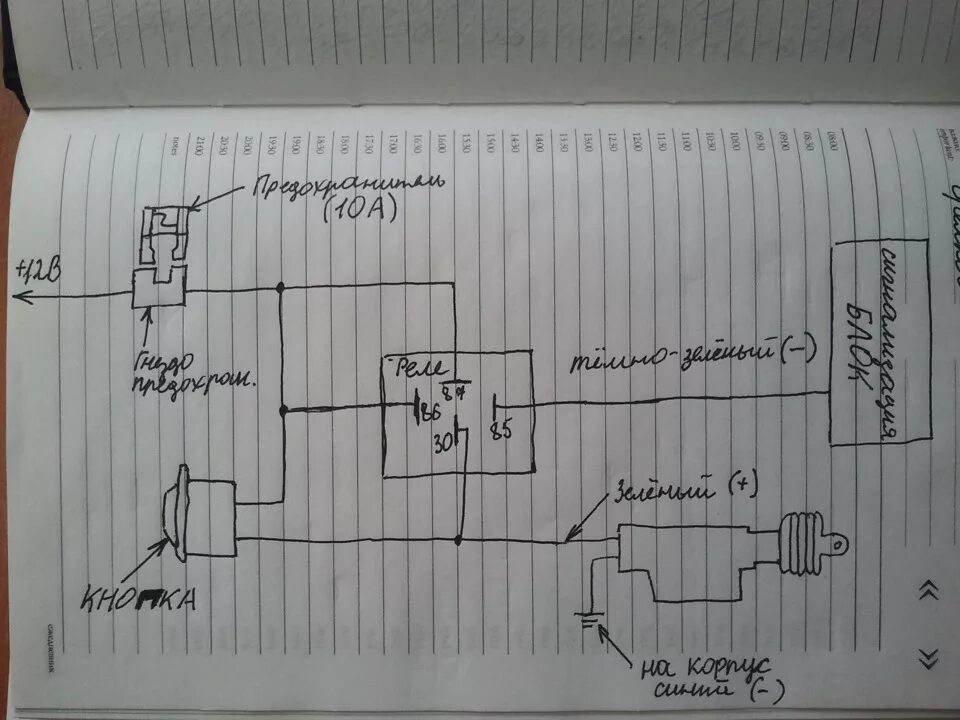 Предохранитель
(10А)
+12В
Гнездо
предохран.
Реле
87
86
30
85
тёмно-зелёный (-)
сигнализация
БЛОК
Зелёный (+)
КНОПКА
на корпус
синий (-)
notes
21:00
20:30
20:00
19:30
19:00
18:30
18:00
17:30
17:00
16:30
16:00
15:30
15:00
14:30
14:00
13:30
13:00
12:30
12:00
11:30
11:00
10:30
10:00
09:30
09:00
08:30
08:00